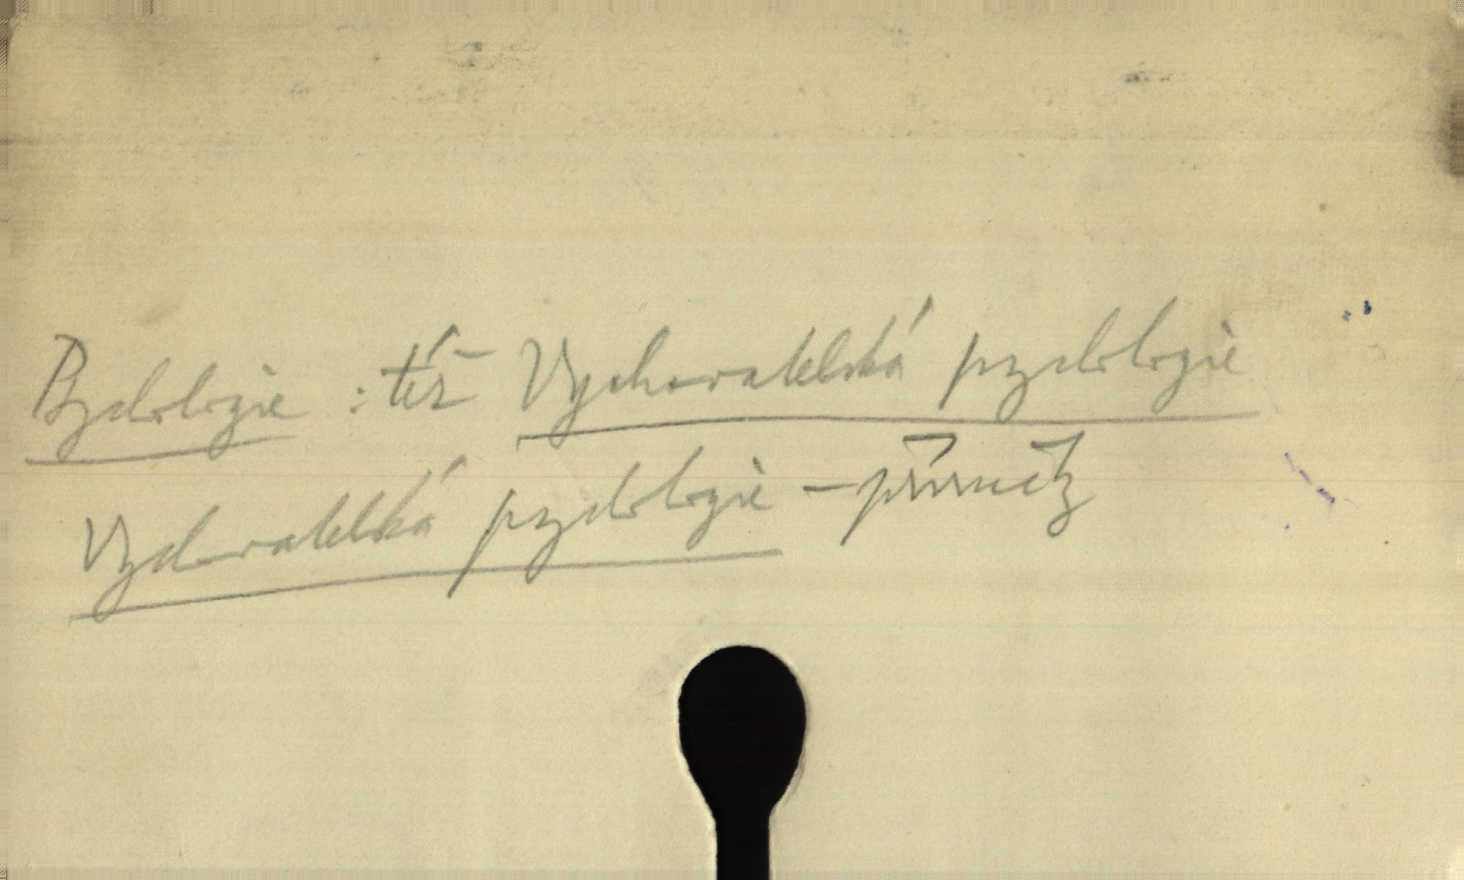 Psychologie : též Vychovatelská psychologie
Vychovatelská psychologie – příručky